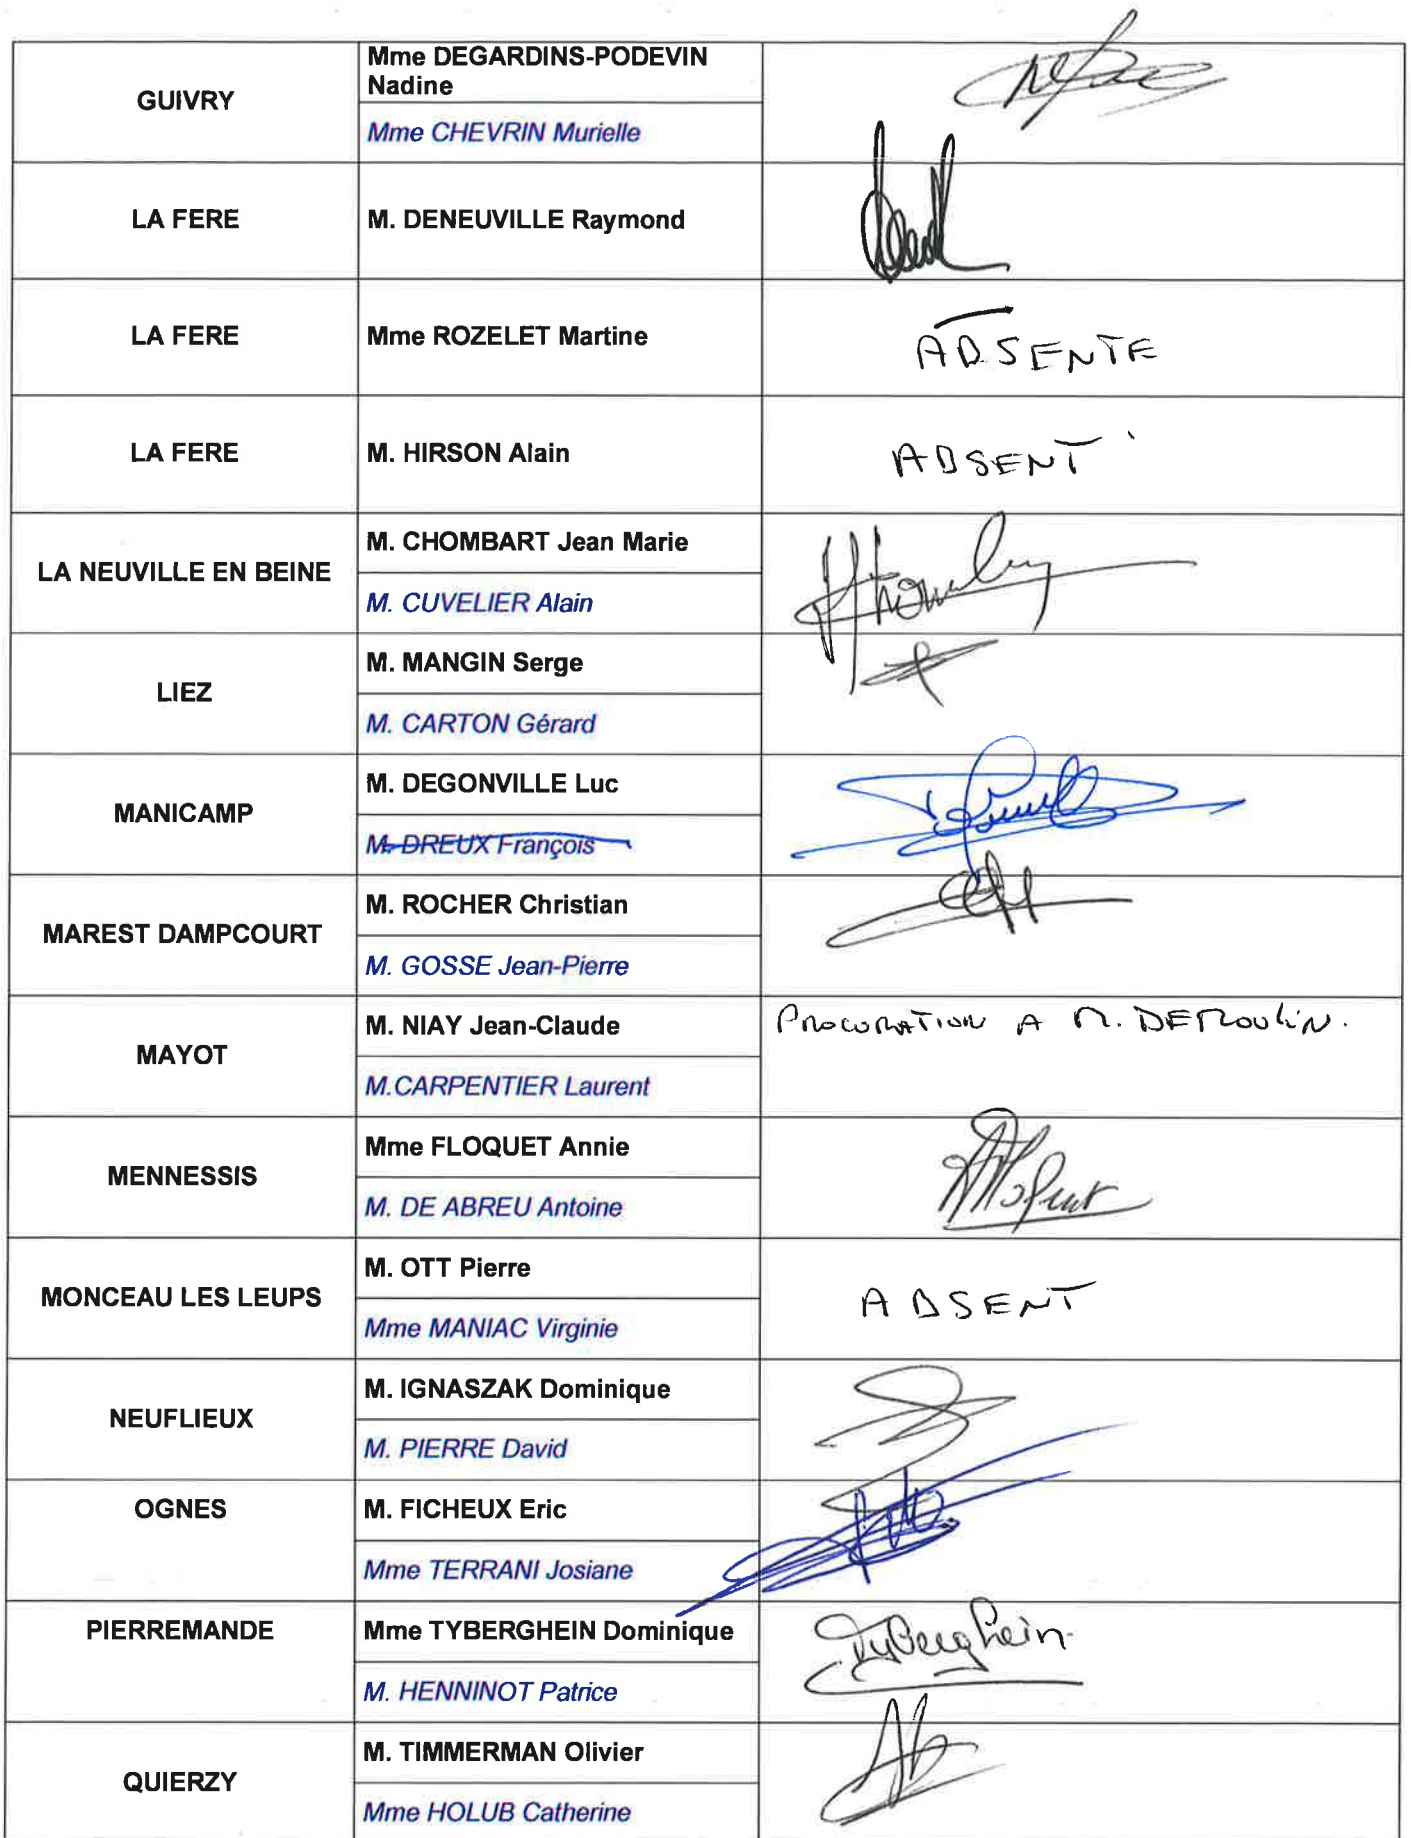 GUIVRY
Mme DEGARDINS-PODEVIN
Nadine
Mme CHEVRIN Murielle
LA FERE
M. DENEUVILLE Raymond
LA FERE
Mme ROZELET Martine
ABSENTE
LA FERE
M. HIRSON Alain
ABSENT
LA NEUVILLE EN BEINE
M. CHOMBART Jean Marie
M. CUVELIER Alain
LIEZ
M. MANGIN Serge
M. CARTON Gérard
MANICAMP
M. DEGONVILLE Luc
M. DREUX François
MAREST DAMPCOURT
M. ROCHER Christian
M. GOSSE Jean-Pierre
MAYOT
M. NIAY Jean-Claude
M.CARPENTIER Laurent
PROCURATION A M. DEMOULIN.
MENNESSIS
Mme FLOQUET Annie
M. DE ABREU Antoine
MONCEAU LES LEUPS
M. OTT Pierre
Mme MANIAC Virginie
ABSENT
NEUFLIEUX
M. IGNASZAK Dominique
M. PIERRE David
OGNES
M. FICHEUX Eric
Mme TERRANI Josiane
PIERREMANDE
Mme TYBERGHEIN Dominique
M. HENNINOT Patrice
Tyberghein
QUIERZY
M. TIMMERMAN Olivier
Mme HOLUB Catherine